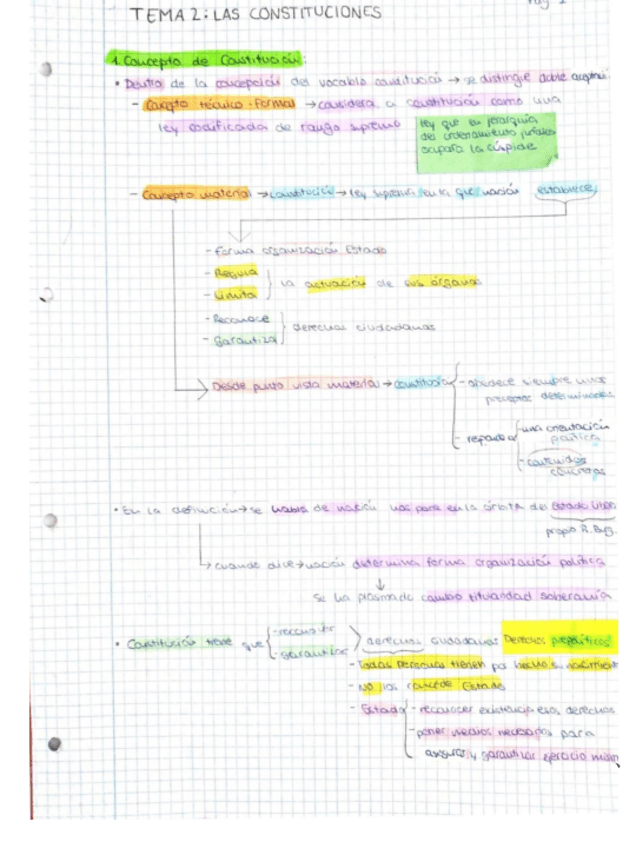 TEMA 2: LAS CONSTITUCIONES
1. Concepto de Constitución:
• Dentro de la concepción del vocablo constitución → se distingue doble
- Concepto técnico-formal → considera a constitución como una
ley codificada de rango supremo
ley que en jerarquía
del ordenamiento jurídico
ocupara la cúspide
- Concepto material → constitución → ley suprema en la que nación establece:
- forma organización Estado
- Regula
- Limita
la actuación de sus órganos
- Reconoce
- Garantiza
derechos ciudadanos
Desde punto vista material → constitución
- obedece siempre unos
preceptos determinados
- responde a
- una orientación
política
- contenidos
concretos
• En la definición → se habla de nación nos pone en la órbita del Estado
propio R. Burg.
→ cuando dice → nación determina forma organización política
↓
se ha plasmado cambio titularidad soberanía
• Constitución tiene que
- reconocer
- garantizar
derechos ciudadanos Derechos prepolíticos
- Todas personas tienen por hecho su nacimiento
- NO los concede Estado
- Estado
- reconocer existencia esos derechos
- poner medios necesarios para
asegurar y garantizar ejercicio mismo